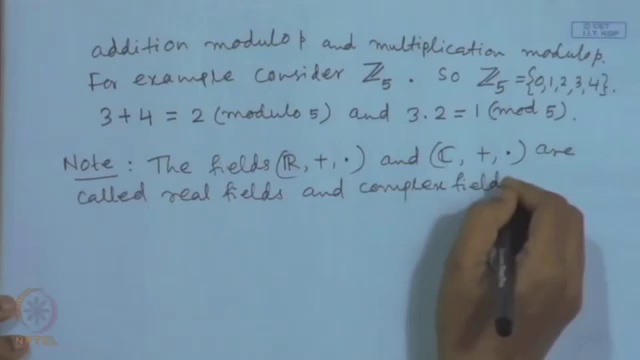 © CET
I.I.T. KGP
addition modulo p and multiplication modulo p.
For example consider ℤ₅. So ℤ₅ = {0,1,2,3,4}.
3+4 = 2 (modulo 5) and 3.2 = 1 (mod 5).
Note : The fields (ℝ, +, ·) and (ℂ, +, ·) are
called real fields and complex field
NPTEL